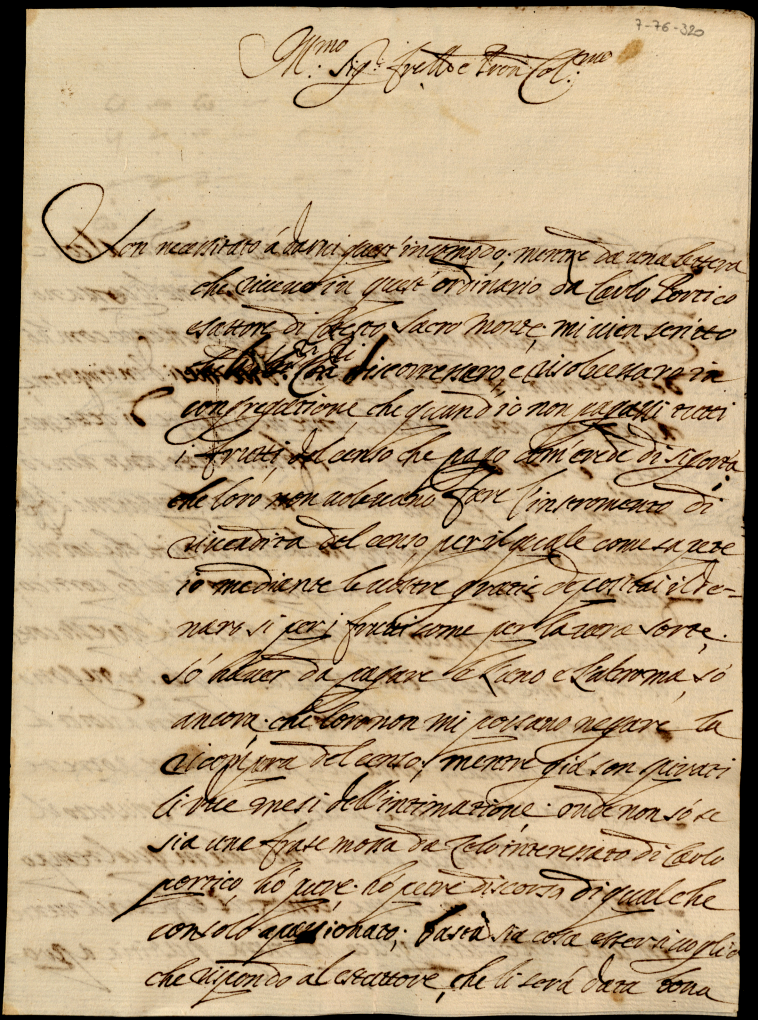 7-76-320
Ill.mo Sig.r fr[ate]llo e Pron Col.mo
Son necessitato á darvi quest'incomodo. mentre da una lettera
che ricevo in quest'ordinario da Carlo Portico
esattore di Cotesto Sacro Monte, mi vien scritto
discorressero e risolvessero in
congregatione che quand'io non pagassi tutti
i frutti del censo che pago com'erede di
che loro non volevano fare l'instromento di
rivendita del censo, per il quale come sapete
io mediante le vostre gratie depositai il de=
naro si per i frutti come per la vera sorte.
só haver da pagare e l'uno e l'altro ma, só
ancora. che loro non mi possano negare la
ricompra del censo, mentre giá son spirati
li due mesi dell'intimatione. onde non só se
sia una frase mossa da Zelo interessato di Carlo
portico, hó pure discorso di qualche
console apassionato; basta sia cosa esser si voglia
che rispondo al esattore, che li será data bona